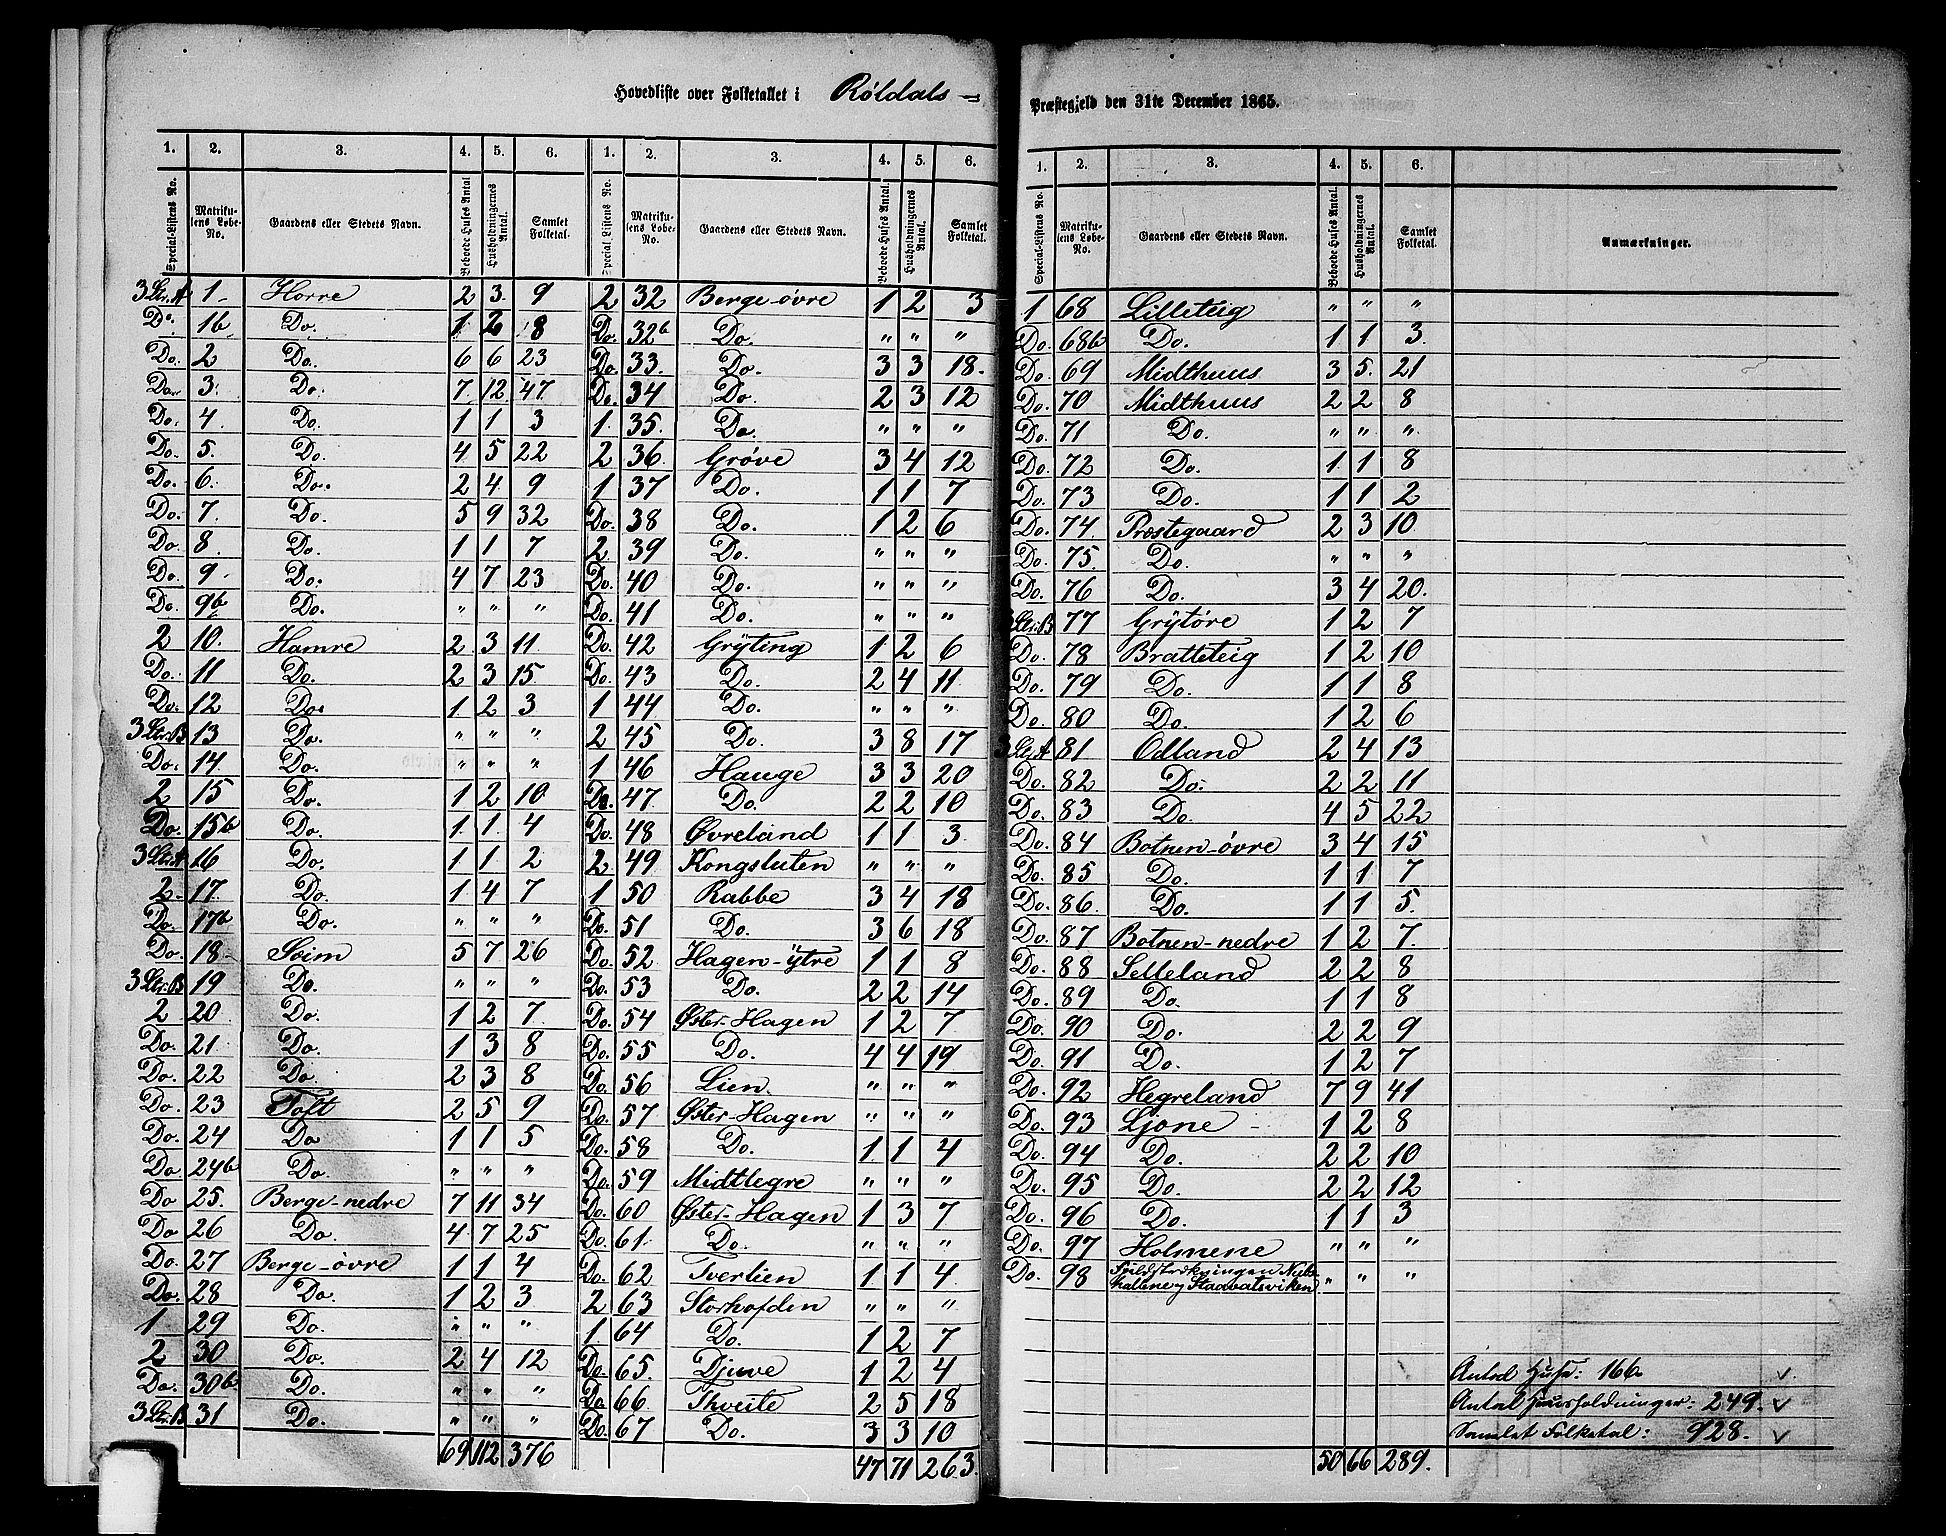 Hovedliste over Folketallet i Röldals =
Præstegjeld den 31te December 1865.
1. 2. 3. 4. 5. 6. 1. 2. 3. 4. 5. 6.
Special-Listens No. Matrikulens Løbe-No. Gaardens eller Stedets Navn. Beboede Huses Antal Husholdningernes Antal. Samlet Folketal. Special-Listens No. Matrikulens Løbe-No. Gaardens eller Stedets Navn. Beboede Huses Antal. Husholdningernes Antal. Samlet Folketal.
3 Litr. A 1 Horre 2 3 9 2 32 Berge-övre 1 2 3
Do. 1b Do. 1 2 8 Do. 32b Do. " " "
Do. 2 Do. 6 6 23 Do. 33. Do. 3 3 18.
Do. 3. Do. 7 12 47 Do. 34 Do. 2 3 12
Do. 4. Do. 1 1 3 1. 35. Do. " " "
Do. 5. Do. 4 5 22 2 36. Gröve 3 4 12
Do. 6. Do. 2 4 9 1 37 Do. 1 1 7
Do. 7. Do. 5 9 32 Do. 38 Do. 1 2 6
Do. 8. Do. 1 1 7 2 39 Do. " " "
Do. 9. Do. 4 7 23 Do. 40 Do. " " "
Do. 9b Do. " " " Do. 41 Do. " " "
2 10. Hamre 2 3 11. Do. 42 Gryting 1 2 6
Do. 11 Do. 2 3 15 Do. 43 Do. 2 4 11
Do. 12 Do. 1 2 3 1 44 Do. " " "
3 Litr. B 13 Do. " " " 2 45 Do. 3 8 17
Do. 14 Do. " " " 1 46 Hauge 3 3 20
2 15 Do. 1 2 10 Do. 47 Do. 2 2 10
Do. 15b Do. 1 1 4 Do. 48 Øvreland 1 1 3
3 Litr. A 16 Do. 1 1 2 2 49 Kongsluten " " "
2 17. Do. 1 4 7 1 50 Rabbe 3 4 18
Do. 17b Do. " " " Do. 51 Do. 3 6 18
Do. 18 Seim 5 7 26 Do. 52 Hagen-ytre 1 1 8
3 Litr. B 19 Do. " " " Do. 53 Do. 2 2 14
2 20 Do. 1 2 7 Do. 54 Øster-Hagen 1 2 7
Do. 21 Do. 1 3 8 Do. 55 Do. 4 4 19
Do. 22 Do. 2 3 8 Do. 56 Lien. " " "
Do. 23 Toft 2 5 9 Do. 57 Øster-Hagen " " "
Do. 24 Do 1 1 5 Do. 58 Do. 1 1 4
Do 24b Do. " " " Do. 59 Midtlegre " " "
Do 25. Berge-nedre 7 11 34 Do. 60 Øster-Hagen 1 3 7
Do 26 Do. 4 7 25 Do. 61. Do. " " "
Do. 27 Berge-övre 1 1 4 Do. 62 Tverlien 1 1 4
Do. 28 Do. 1 2 3 2 63 Storhofden " " "
1 29 Do. " " " 1. 64 Do. 1 2 7
2 30 Do. 2 4 12 Do. 65. Djuve 1 2 4
Do. 30b Do. " " " Do. 66 Thveite 2 5 18
3 Litr. B 31 Do. " " " Do. 67 Do. 3 3 10
69 112 376 47 71 263.
1. 2. 3. 4. 5. 6.
Special-Listens No. Matrikulens Løbe-No. Gaardens eller Stedets Navn. Beboede Huses Antal. Husholdningernes Antal. Samlet Folketal. Anmærkninger.
1 68 Lilleteig " " "
Do. 68b Do. 1 1 3.
Do. 69 Midthuus 3 5 21
Do. 70 Midthuus 2 2 8
Do. 71 Do. " " "
Do. 72 Do. 1 1 8
Do. 73 Do. 1 1 2
Do. 74. Præstegaard 2 3 10.
Do. 75. Do. " " "
Do. 76 Do. 3 4 20.
3 Litr. B 77 Grytöre 1 2 7
Do. 78 Bratteteig 1 2 10
Do. 79 Do. 1 1 8
Do. 80 Do. 1 2 6
3 Litr. A 81 Odland 2 4 13
Do. 82 Do. 2 2 11
Do. 83 Do. 4 5 22
Do. 84 Botnen-övre 3 4 15
Do. 85 Do. 1 1 7
Do. 86. Do. 1 1 5.
Do. 87 Botnen-nedre 1 2 7.
Do. 88 Selleland 2 2 8
Do. 89 Do. 1 1 8
Do. 90 Do. 2 2 9
Do. 91 Do. 1 2 7
Do. 92 Hegreland 7 9 41
Do. 93 Ljone 1 2 8
Do. 94 Do. 2 2 10
Do. 95 Do. 2 2 12
Do. 96 Do. 1 1 3
Do. 97 Holmene " " "
Do. 98 " " "
Staavatsviken
Antal Huse: 166
Antal Huusholdninger: 249.
Samlet Folketal: 928.
50 66 289.